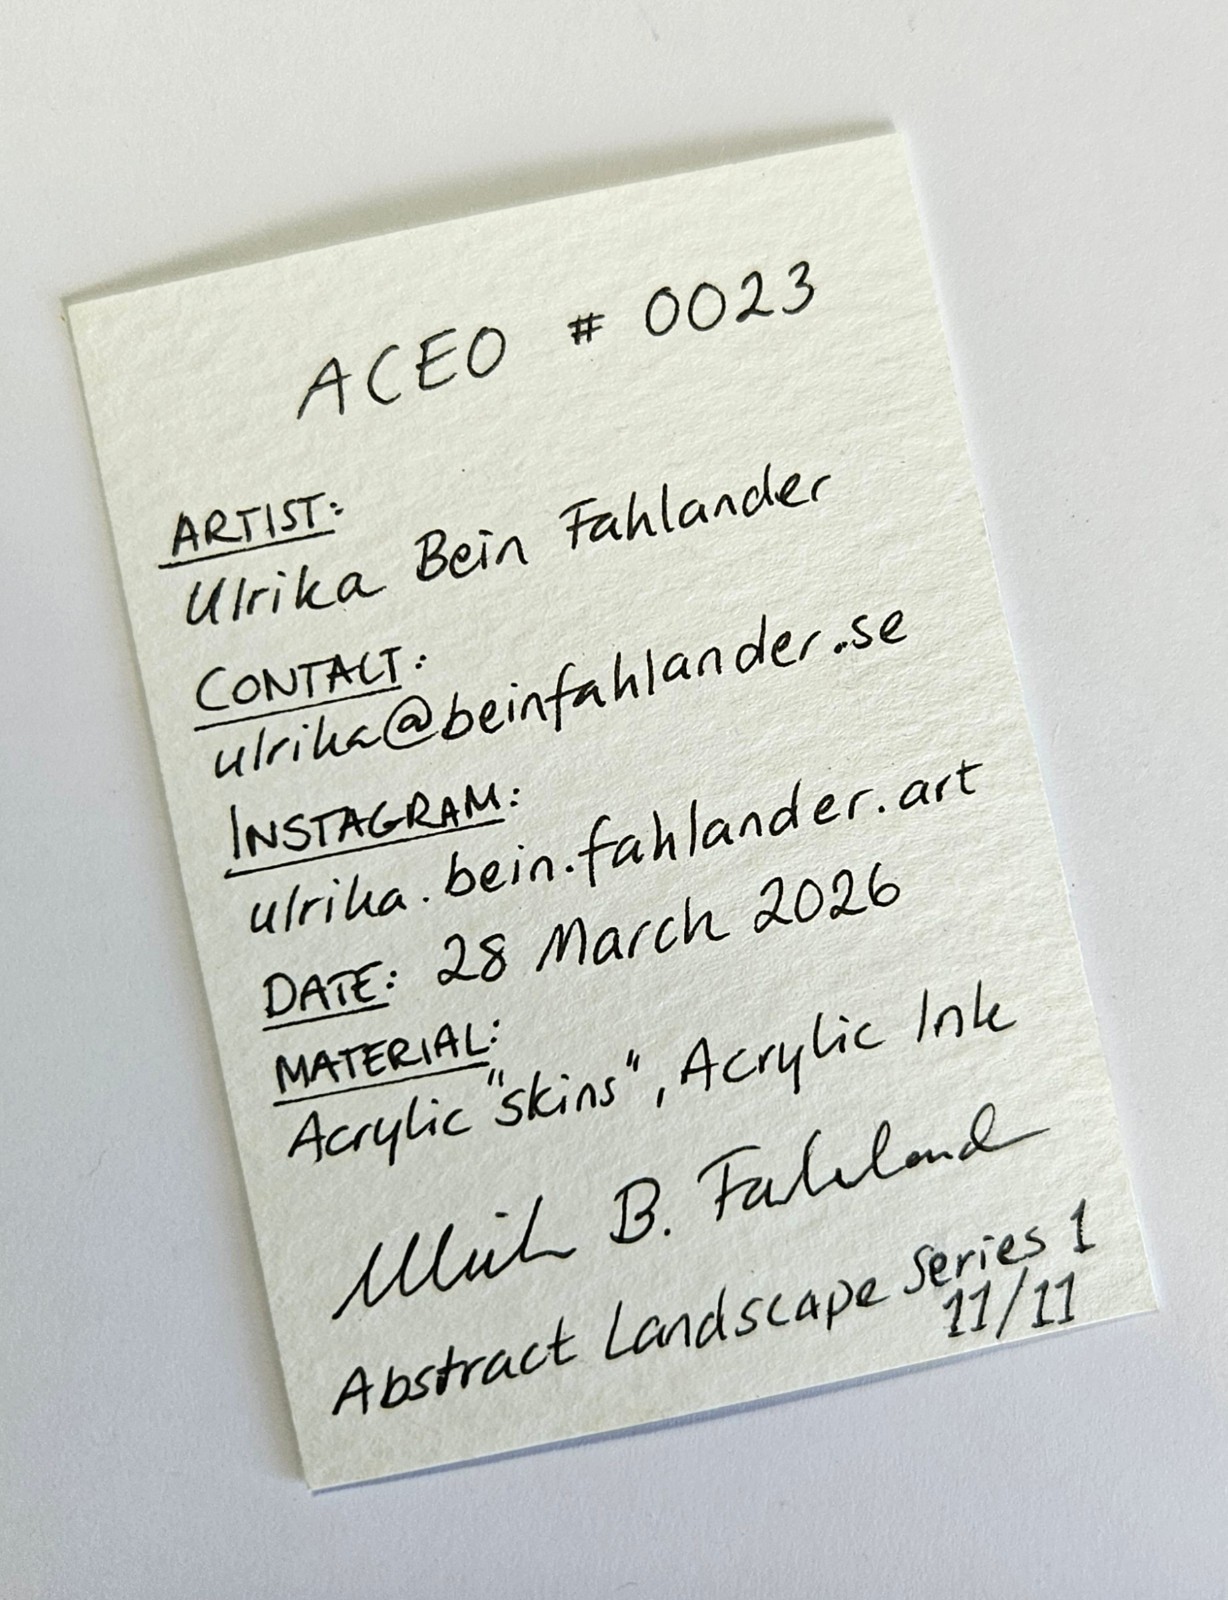 ACEO # 0023
ARTIST:
Ulrika Bein Fahlander
CONTACT:
ulrika@beinfahlander.se
INSTAGRAM:
ulrika.bein.fahlander.art
DATE: 28 March 2026
MATERIAL:
Acrylic "skins", Acrylic Ink
Ulrika B. Fahlander
Abstract Landscape Series 1
11/11